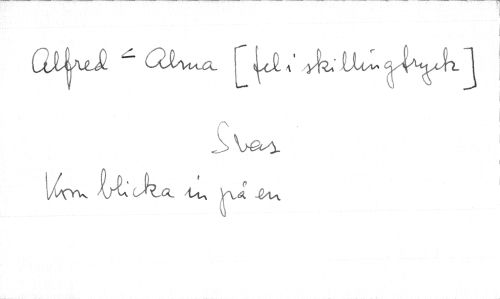 Alfred = Alma [fel i skillingtryck]
Svas
Kom blicka in på en